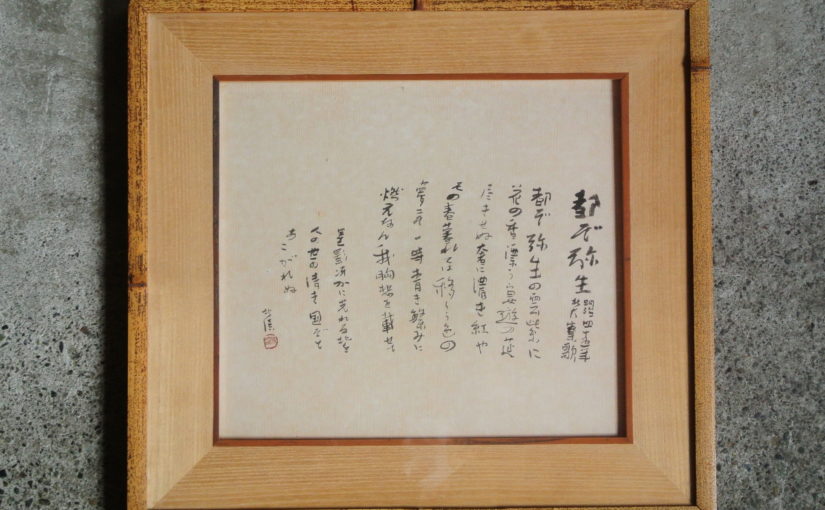 都ぞ弥生
明治四十五年
北大寮歌
都ぞ弥生の雲紫に
花の香漂う宴遊の莚
尽きせぬ奢に濃き紅や
その春暮れては移ろう色の
夢こそ一時青き繁みに
燃えなん我胸想を載せて
星影冴かに光れる北を
人の世の清き国ぞと
あこがれぬ